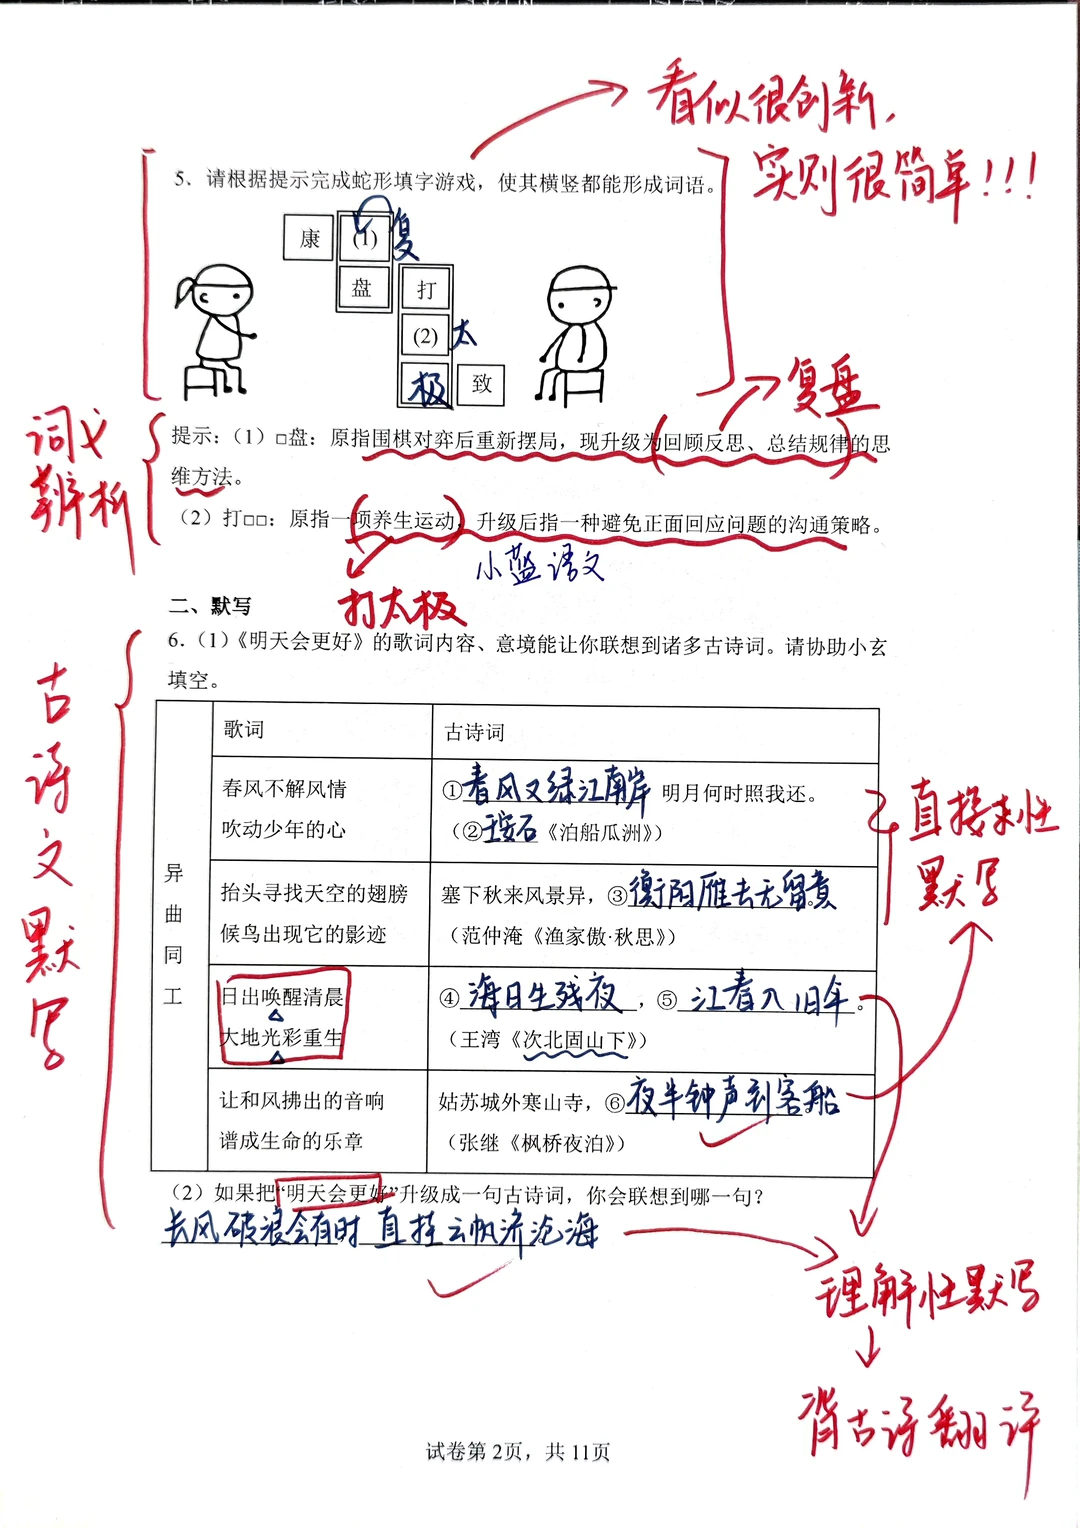 看似很创新，
实则很简单！！！
5、请根据提示完成蛇形填字游戏，使其横竖都能形成词语。
康 (1) 复
盘 打
(2) 太
极 致
复盘
词义
辨析
提示：（1）□盘：原指围棋对弈后重新摆局，现升级为回顾反思、总结规律的思
维方法。
（2）打□□：原指一项养生运动，升级后指一种避免正面回应问题的沟通策略。
小蓝语文
打太极
二、默写
古诗文默写
6.（1）《明天会更好》的歌词内容、意境能让你联想到诸多古诗词。请协助小玄
填空。
异曲同工
歌词 古诗词
春风不解风情
吹动少年的心
①春风又绿江南岸 明月何时照我还。
（②王安石《泊船瓜洲》）
直接性
默写
抬头寻找天空的翅膀
候鸟出现它的影迹
塞下秋来风景异，③衡阳雁去无留意
（范仲淹《渔家傲·秋思》）
日出唤醒清晨
大地光彩重生
④海日生残夜，⑤江春入旧年。
（王湾《次北固山下》）
让和风拂出的音响
谱成生命的乐章
姑苏城外寒山寺，⑥夜半钟声到客船
（张继《枫桥夜泊》）
（2）如果把“明天会更好”升级成一句古诗词，你会联想到哪一句？
长风破浪会有时 直挂云帆济沧海
理解性默写
背古诗翻译
试卷第 2页，共 11页